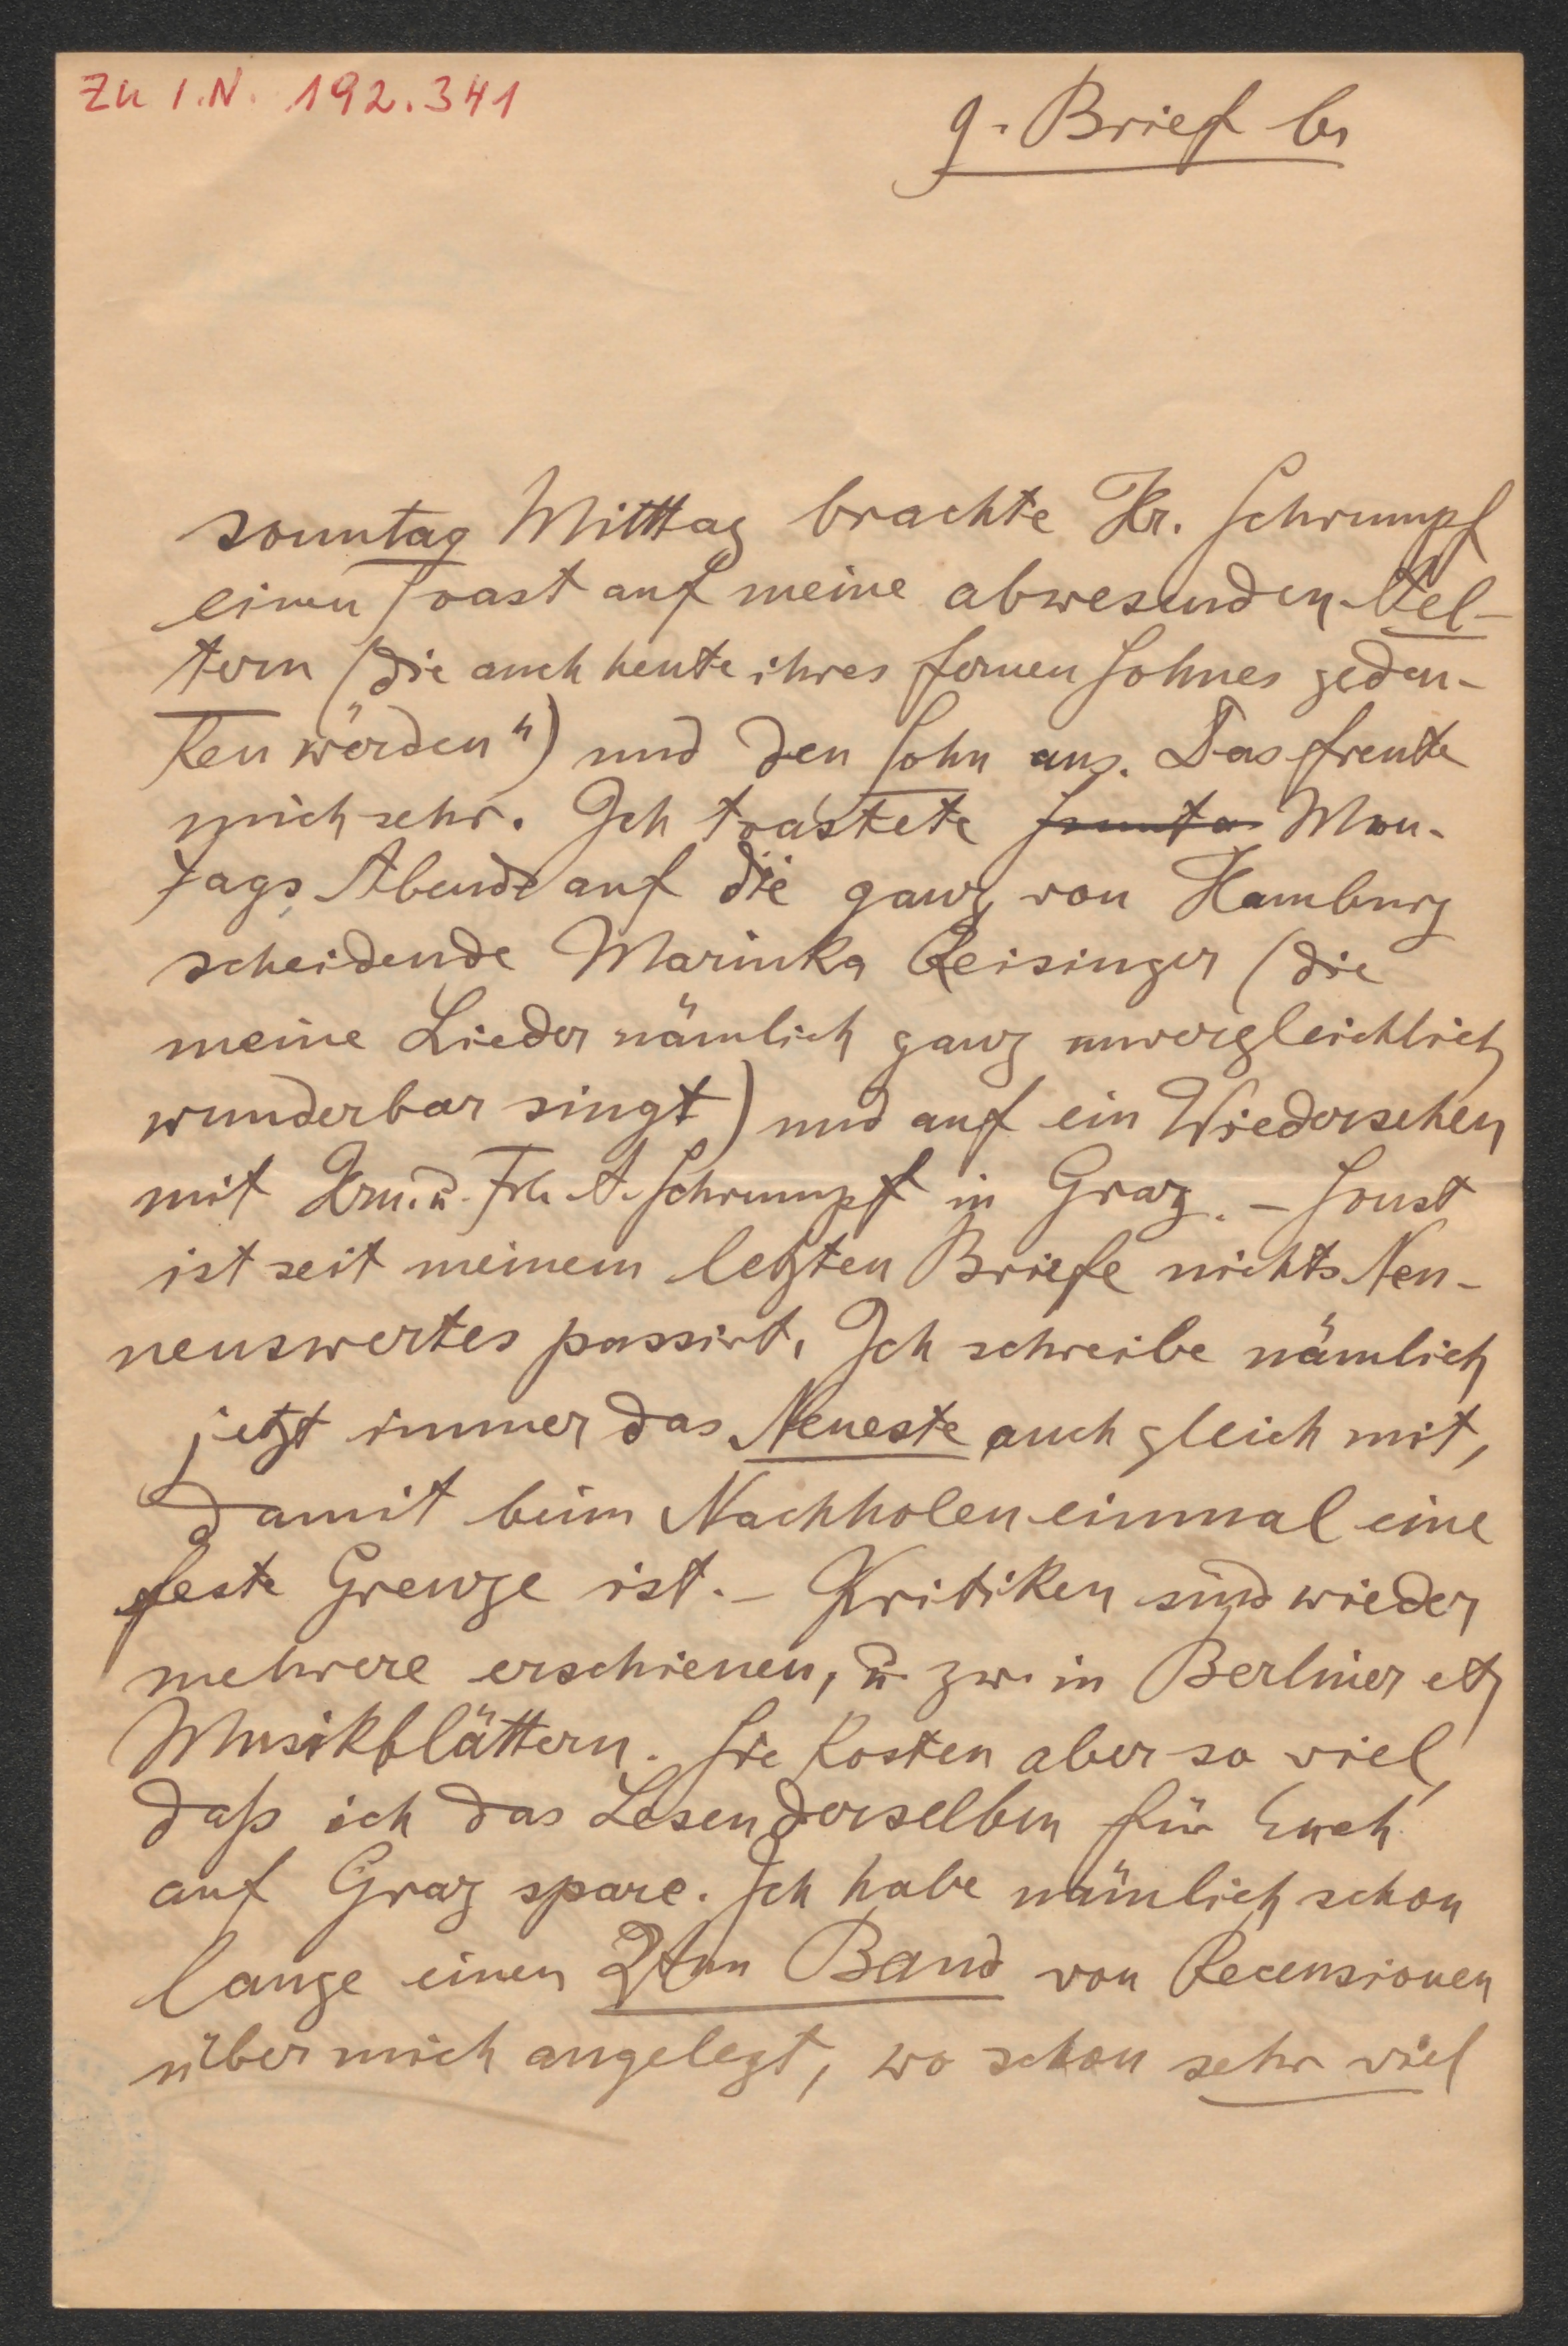 Zu I.N. 192.341
9. Brief b
sonntag Mitttag brachte Hr. Schrumpf
einen Toast auf meine abwesenden Ael-
tern (die auch heute ihres fernen Sohnes geden-
ken würden") und den Sohn aus. Das freute
mich sehr. Ich toastete Sonnta Mon-
tags Abends auf die ganz von Hamburg
scheidende Marinka Reisinger (die
meine Lieder nämlich ganz unvergleichlich
wunderbar singt) und auf ein Wiedersehen
mit Hrn. u. Frl. A. Schrumpf in Graz. – Sonst
ist seit meinem letzten Briefe nichts Nen-
nenswertes passirt. Ich schreibe nämlich
jetzt immer das Neueste auch gleich mit,
damit beim Nachholen einmal eine
feste Grenze ist. – Kritiken sind wieder
mehrere erschienen, u. zw. in Berliner etz
Musikblättern. Sie kosten aber so viel,
daß ich das Lesen derselben für Euch
auf Graz spare. Ich habe nämlich schon
lange einen 2ten Band von Recensionen
über mich angelegt, wo schon sehr viel